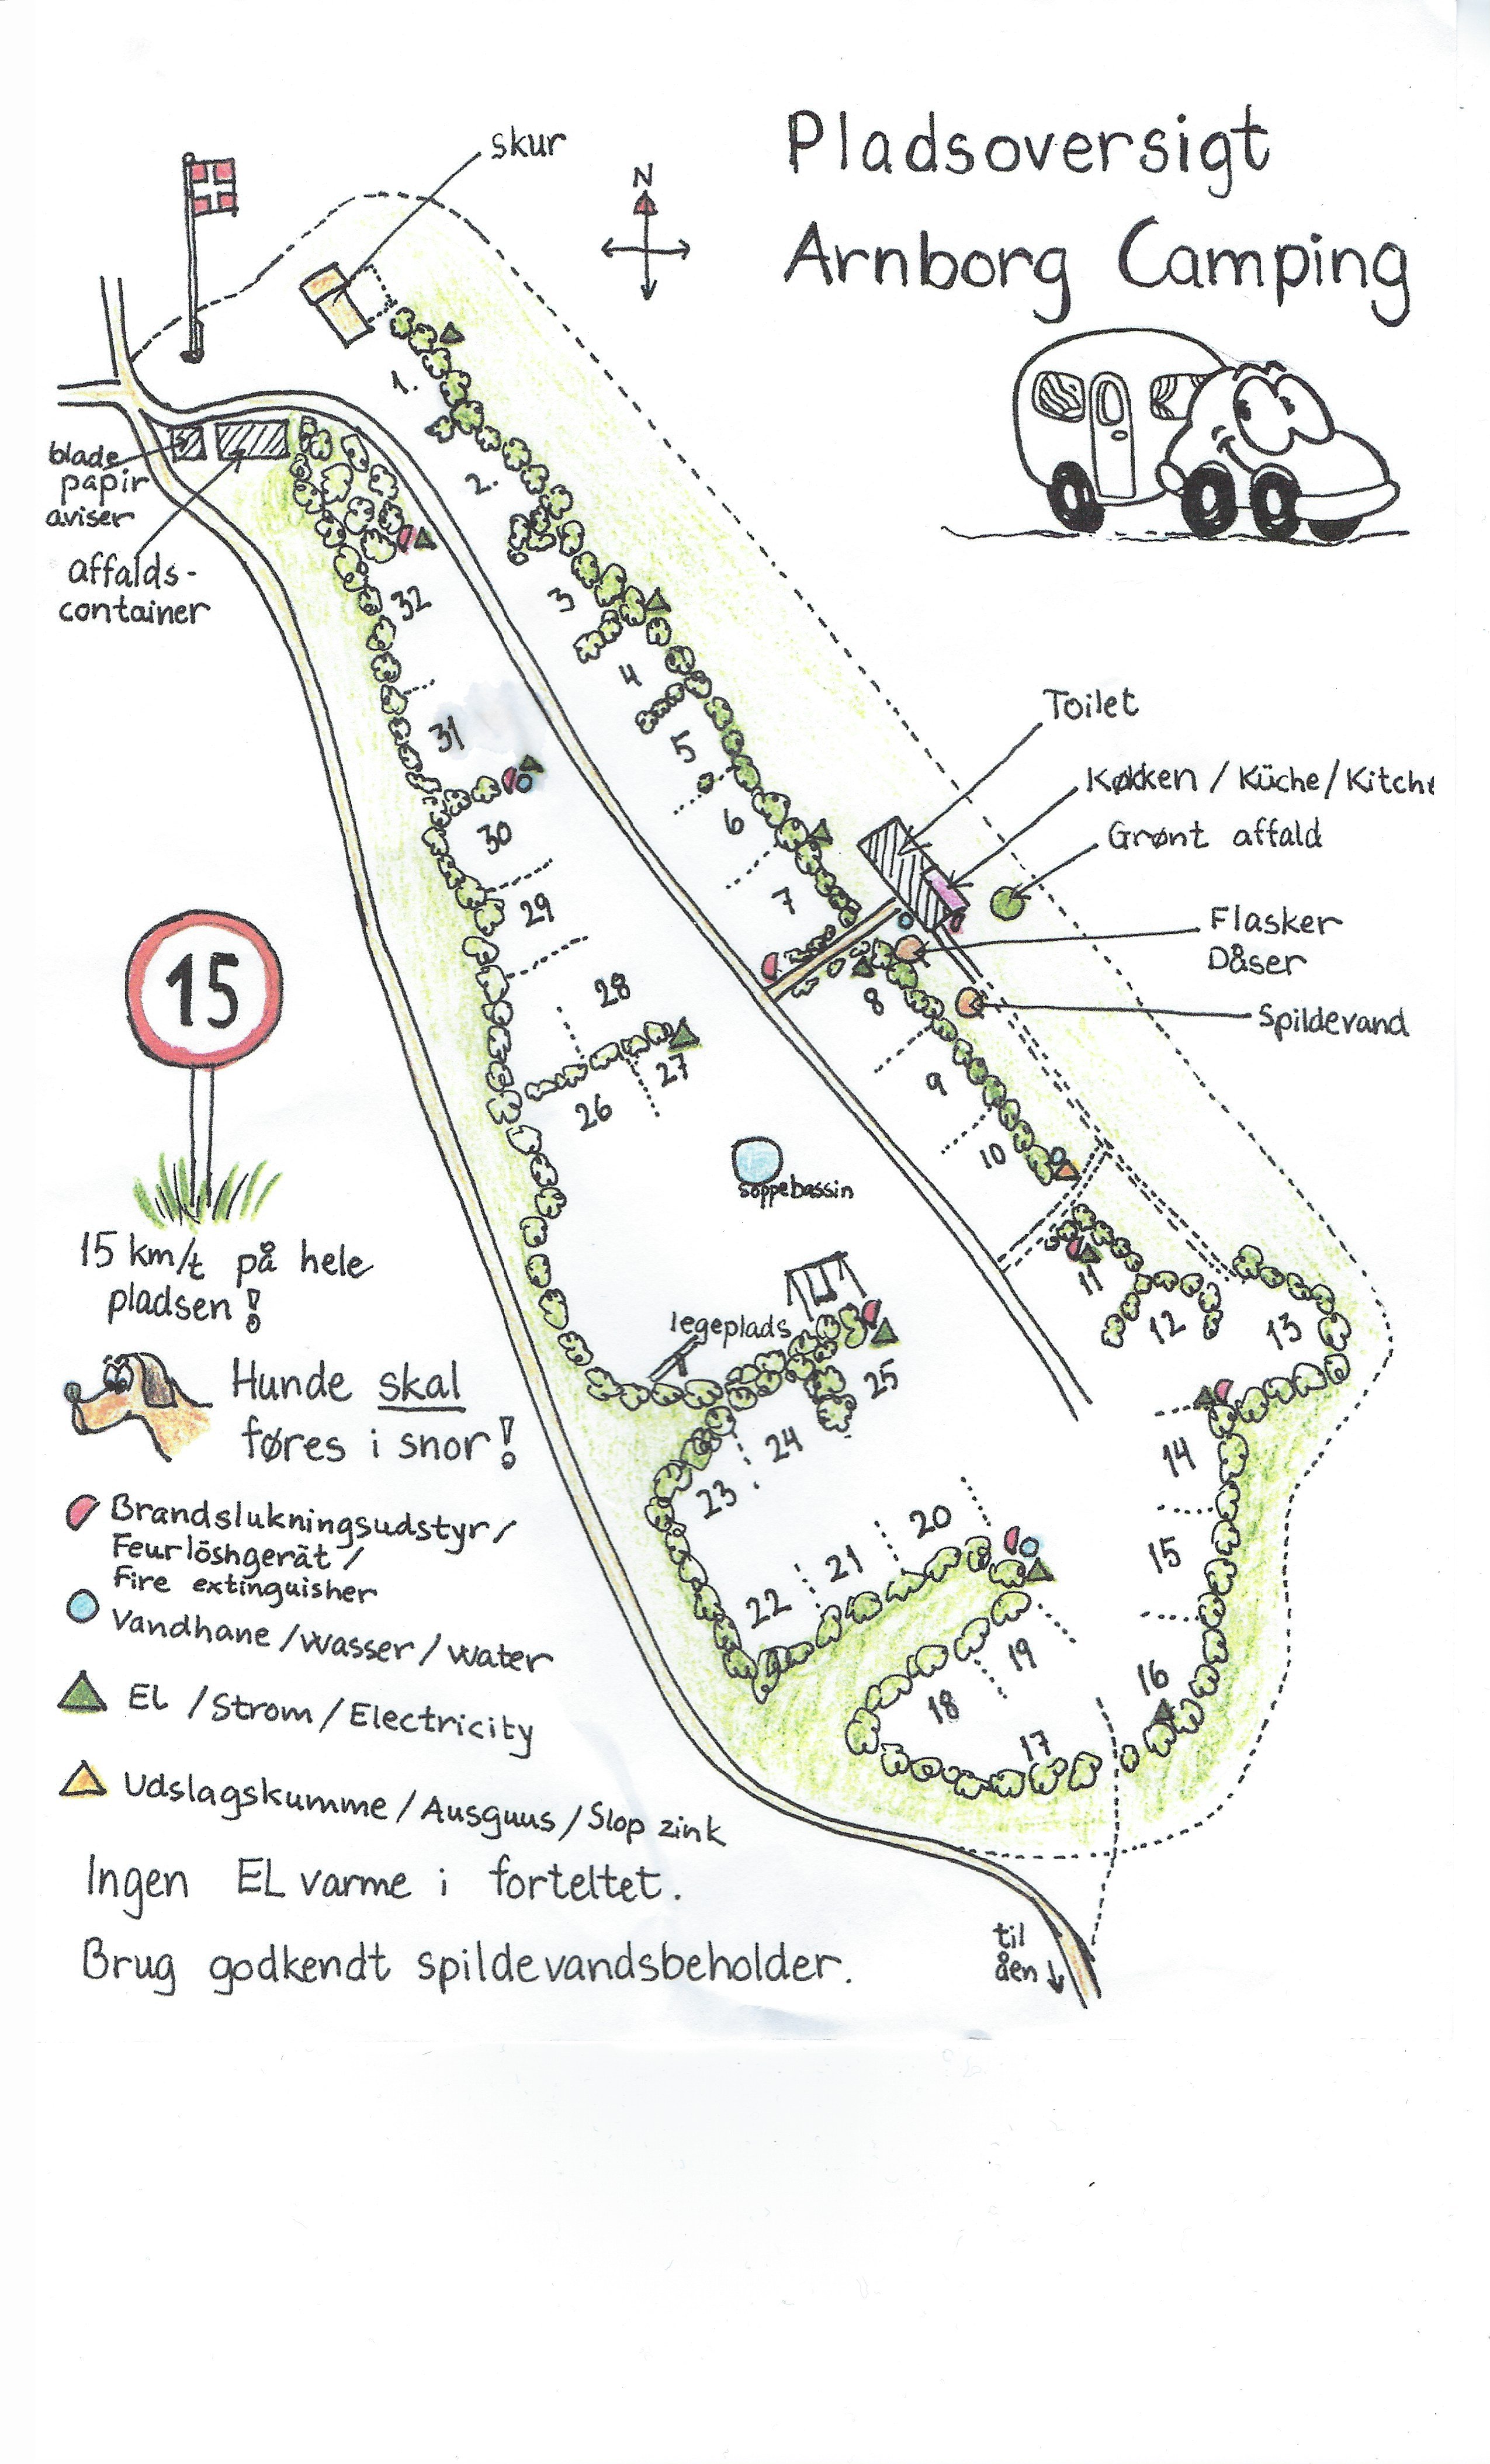 Pladsoversigt
Arnborg Camping
skur
N
blade
papir
aviser
affalds-
container
1.
2.
3
4
5
6
7
8
9
10
11
12
13
14
15
16
17
18
19
20
21
22
23
24
25
26
27
28
29
30
31
32
Toilet
Køkken / Küche / Kitche
Grønt affald
Flasker
Dåser
Spildevand
soppebassin
legeplads
15
15 km/t på hele
pladsen!
Hunde skal
føres i snor!
Brandslukningsudstyr /
Feurlöshgerät /
Fire extinguisher
Vandhane / Wasser / Water
El / Strom / Electricity
Udslagskumme / Ausguus / Slop zink
Ingen EL varme i forteltet.
Brug godkendt spildevandsbeholder.
til
åen ↓